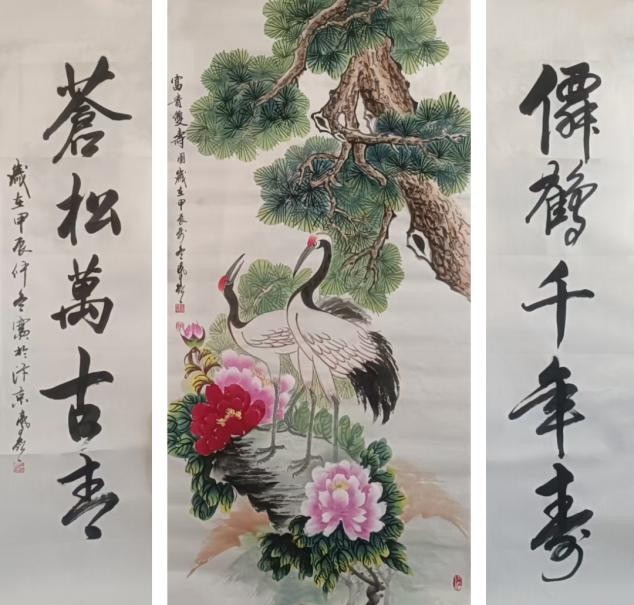 僊鶴千年壽
富貴雙壽圖歲在甲辰
蒼松萬古青
歲在甲辰仲冬寫於汴京